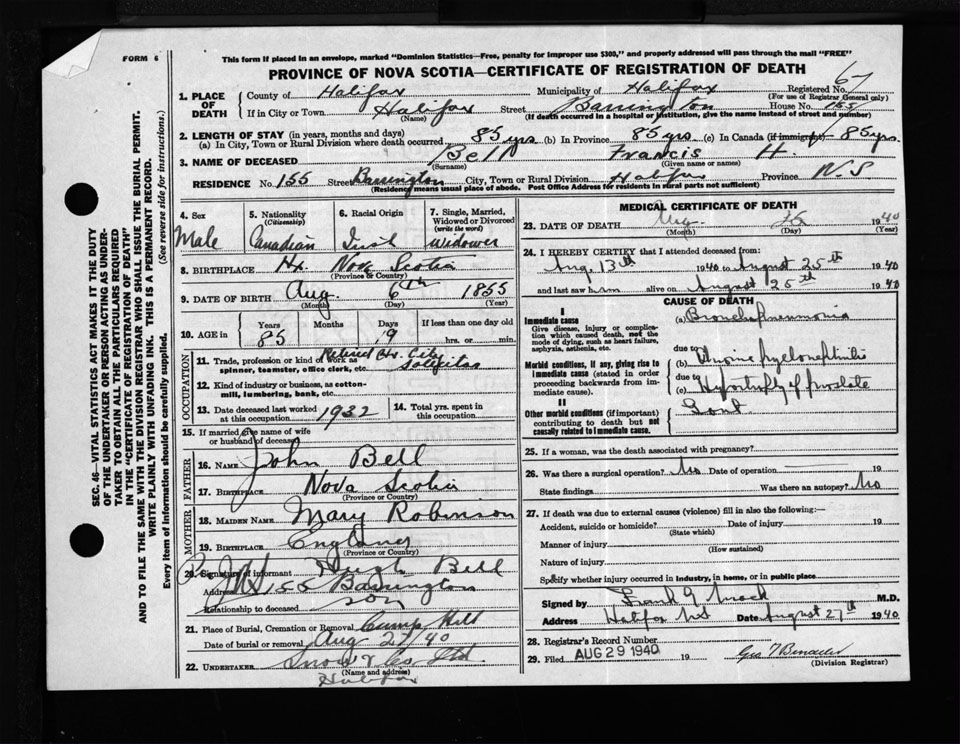 FORM 6
This form if placed in an envelope, marked "Dominion Statistics—Free, penalty for improper use $300," and properly addressed will pass through the mail "FREE"
PROVINCE OF NOVA SCOTIA—CERTIFICATE OF REGISTRATION OF DEATH
67
1. PLACE OF DEATH
County of Halifax Municipality of Halifax Registered No.
(For use of Registrar General only)
If in City or Town Halifax Street Barrington House No. 155
(Name) (If death occurred in a hospital or institution, give the name instead of street and number)
2. LENGTH OF STAY (in years, months and days)
(a) In City, Town or Rural Division where death occurred 85 yrs (b) In Province 85 yrs. (c) In Canada (if immigrant) 85 yrs.
3. NAME OF DECEASED Bell Francis H.
(Surname) (Given name or names)
RESIDENCE No. 155 Street Barrington City, Town or Rural Division Halifax Province N.S
(Residence means usual place of abode. Post Office Address for residents in rural parts not sufficient)
SEC. 46—VITAL STATISTICS ACT MAKES IT THE DUTY
OF THE UNDERTAKER OR PERSON ACTING AS UNDERTAKER
TO OBTAIN ALL THE PARTICULARS REQUIRED
IN THE "CERTIFICATE OF REGISTRATION OF DEATH"
AND TO FILE THE SAME WITH THE DIVISION REGISTRAR WHO SHALL ISSUE THE BURIAL PERMIT.
WRITE PLAINLY WITH UNFADING INK. THIS IS A PERMANENT RECORD.
Every item of information should be carefully supplied. (See reverse side for instructions.)
4. Sex Male
5. Nationality (Citizenship) Canadian
6. Racial Origin
7. Single, Married, Widowed or Divorced (write the word) Widower
8. BIRTHPLACE Hx. Nova Scotia
(Province or Country)
9. DATE OF BIRTH Aug. 6th 1855
(Month) (Day) (Year)
10. AGE in Years 85 Months Days 19 If less than one day old
hrs. or min.
OCCUPATION
11. Trade, profession or kind of work as Retired City
spinner, teamster, office clerk, etc.
12. Kind of industry or business, as cotton-
mill, lumbering, bank, etc.
13. Date deceased last worked at this occupation 1932
14. Total yrs. spent in this occupation
15. If married give name of wife
or husband of deceased
FATHER
16. NAME John Bell
17. BIRTHPLACE Nova Scotia
(Province or Country)
MOTHER
18. MAIDEN NAME Mary Robinson
19. BIRTHPLACE England
(Province or Country)
20. Signature of informant Hugh Bell
Address 155 Barrington
Relationship to deceased son
21. Place of Burial, Cremation or Removal Camp Hill
Date of burial or removal Aug 27/40
22. UNDERTAKER Snow & Co Ltd
(Name and address)
Halifax
MEDICAL CERTIFICATE OF DEATH
23. DATE OF DEATH Aug. 25 1940
(Month) (Day) (Year)
24. I HEREBY CERTIFY that I attended deceased from:
Aug. 13th 1940 to August 25th 1940
and last saw him alive on August 25th 1940
CAUSE OF DEATH
I
Immediate cause (a) Bronchopneumonia
Give disease, injury or complication
which caused death, not the
mode of dying, such as heart failure,
asphyxia, asthenia, etc.
due to
Morbid conditions, if any, giving rise to (b) Chronic pyelonephritis
immediate cause (stated in order
proceeding backwards from immediate
cause). due to (c) Hypertrophy of prostate
II
Other morbid conditions (if important) Gout
contributing to death but not
causally related to immediate cause.
25. If a woman, was the death associated with pregnancy?
26. Was there a surgical operation? No Date of operation 19
State findings Was there an autopsy? No
27. If death was due to external causes (violence) fill in also the following:—
Accident, suicide or homicide? Date of injury 19
(State which)
Manner of injury
(How sustained)
Nature of injury
Specify whether injury occurred in industry, in home, or in public place
Signed by Frank M.D.
Address Halifax NS Date August 27th 1940
28. Registrar's Record Number
29. Filed AUG 29 1940 19
(Division Registrar)